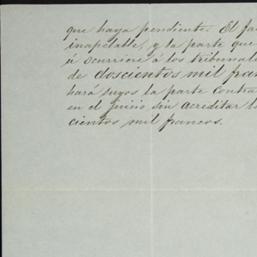 que haya pendiente. El fa
inapelable, y la parte que
ú ocurriere á los tribunal
de doscientos mil fran
hará suyos la parte contra
en el juicio sin acreditar
cientos mil francos.